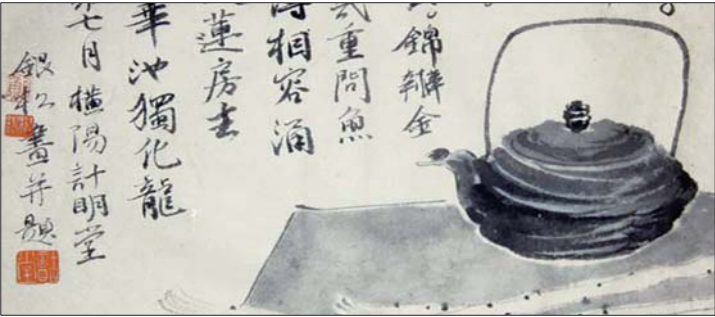 錦瓣金
重問魚
相容涌
蓮房去
華池獨化龍
七月橫陽計明堂
銀松畫并題